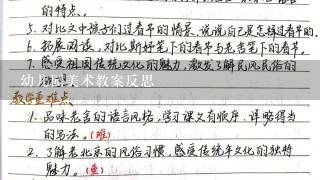 的特点。
5. 对比文中孩子们过春节的情景,说说自己是怎样过春节的。
6. 拓展阅读,对比斯好笔下的春节与老舍笔下的春节。
7. 感受祖国传统文化的魅力,激发了解民风民俗的
幼儿园美术教案反思
教学重难点
1. 品味老舍的语言风格,学习课文有顺序,详略得当
的写法。(难)
2. 了解老北京的风俗习惯,感受传统年文化的独特
魅力。(重)